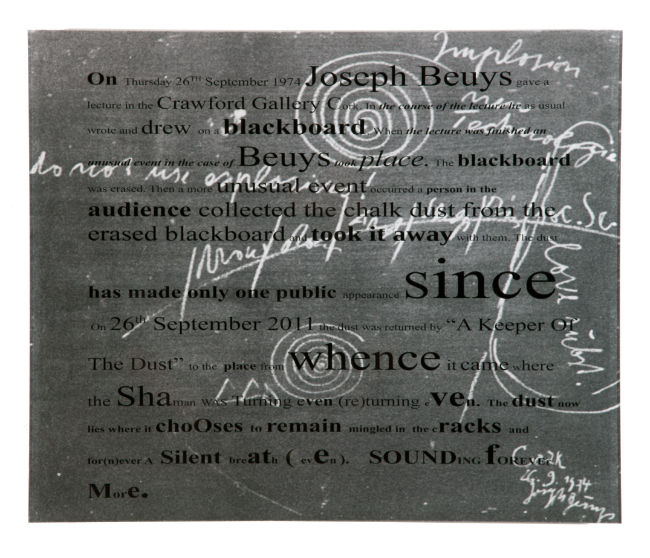 Implosion
On Thursday 26TH September 1974 Joseph Beuys gave a
lecture in the Crawford Gallery Cork. In the course of the lecture he as usual
wrote and drew on a blackboard. When the lecture was finished an
unusual event in the case of Beuys took place. The blackboard
do not use
was erased. Then a more unusual event occurred a person in the
audience collected the chalk dust from the
erased blackboard and took it away with them. The dust
has made only one public appearance since
On 26th September 2011 the dust was returned by “A Keeper Of
The Dust” to the place from whence it came where
the Shaman WAS Turning even (re)turning eVen. The dust now
lies where it chOoses to remain mingled in the cracks and
for(n)ever A Silent breath ( evEn ). SOUNDing fOREVER
MorE.
Cork
1974